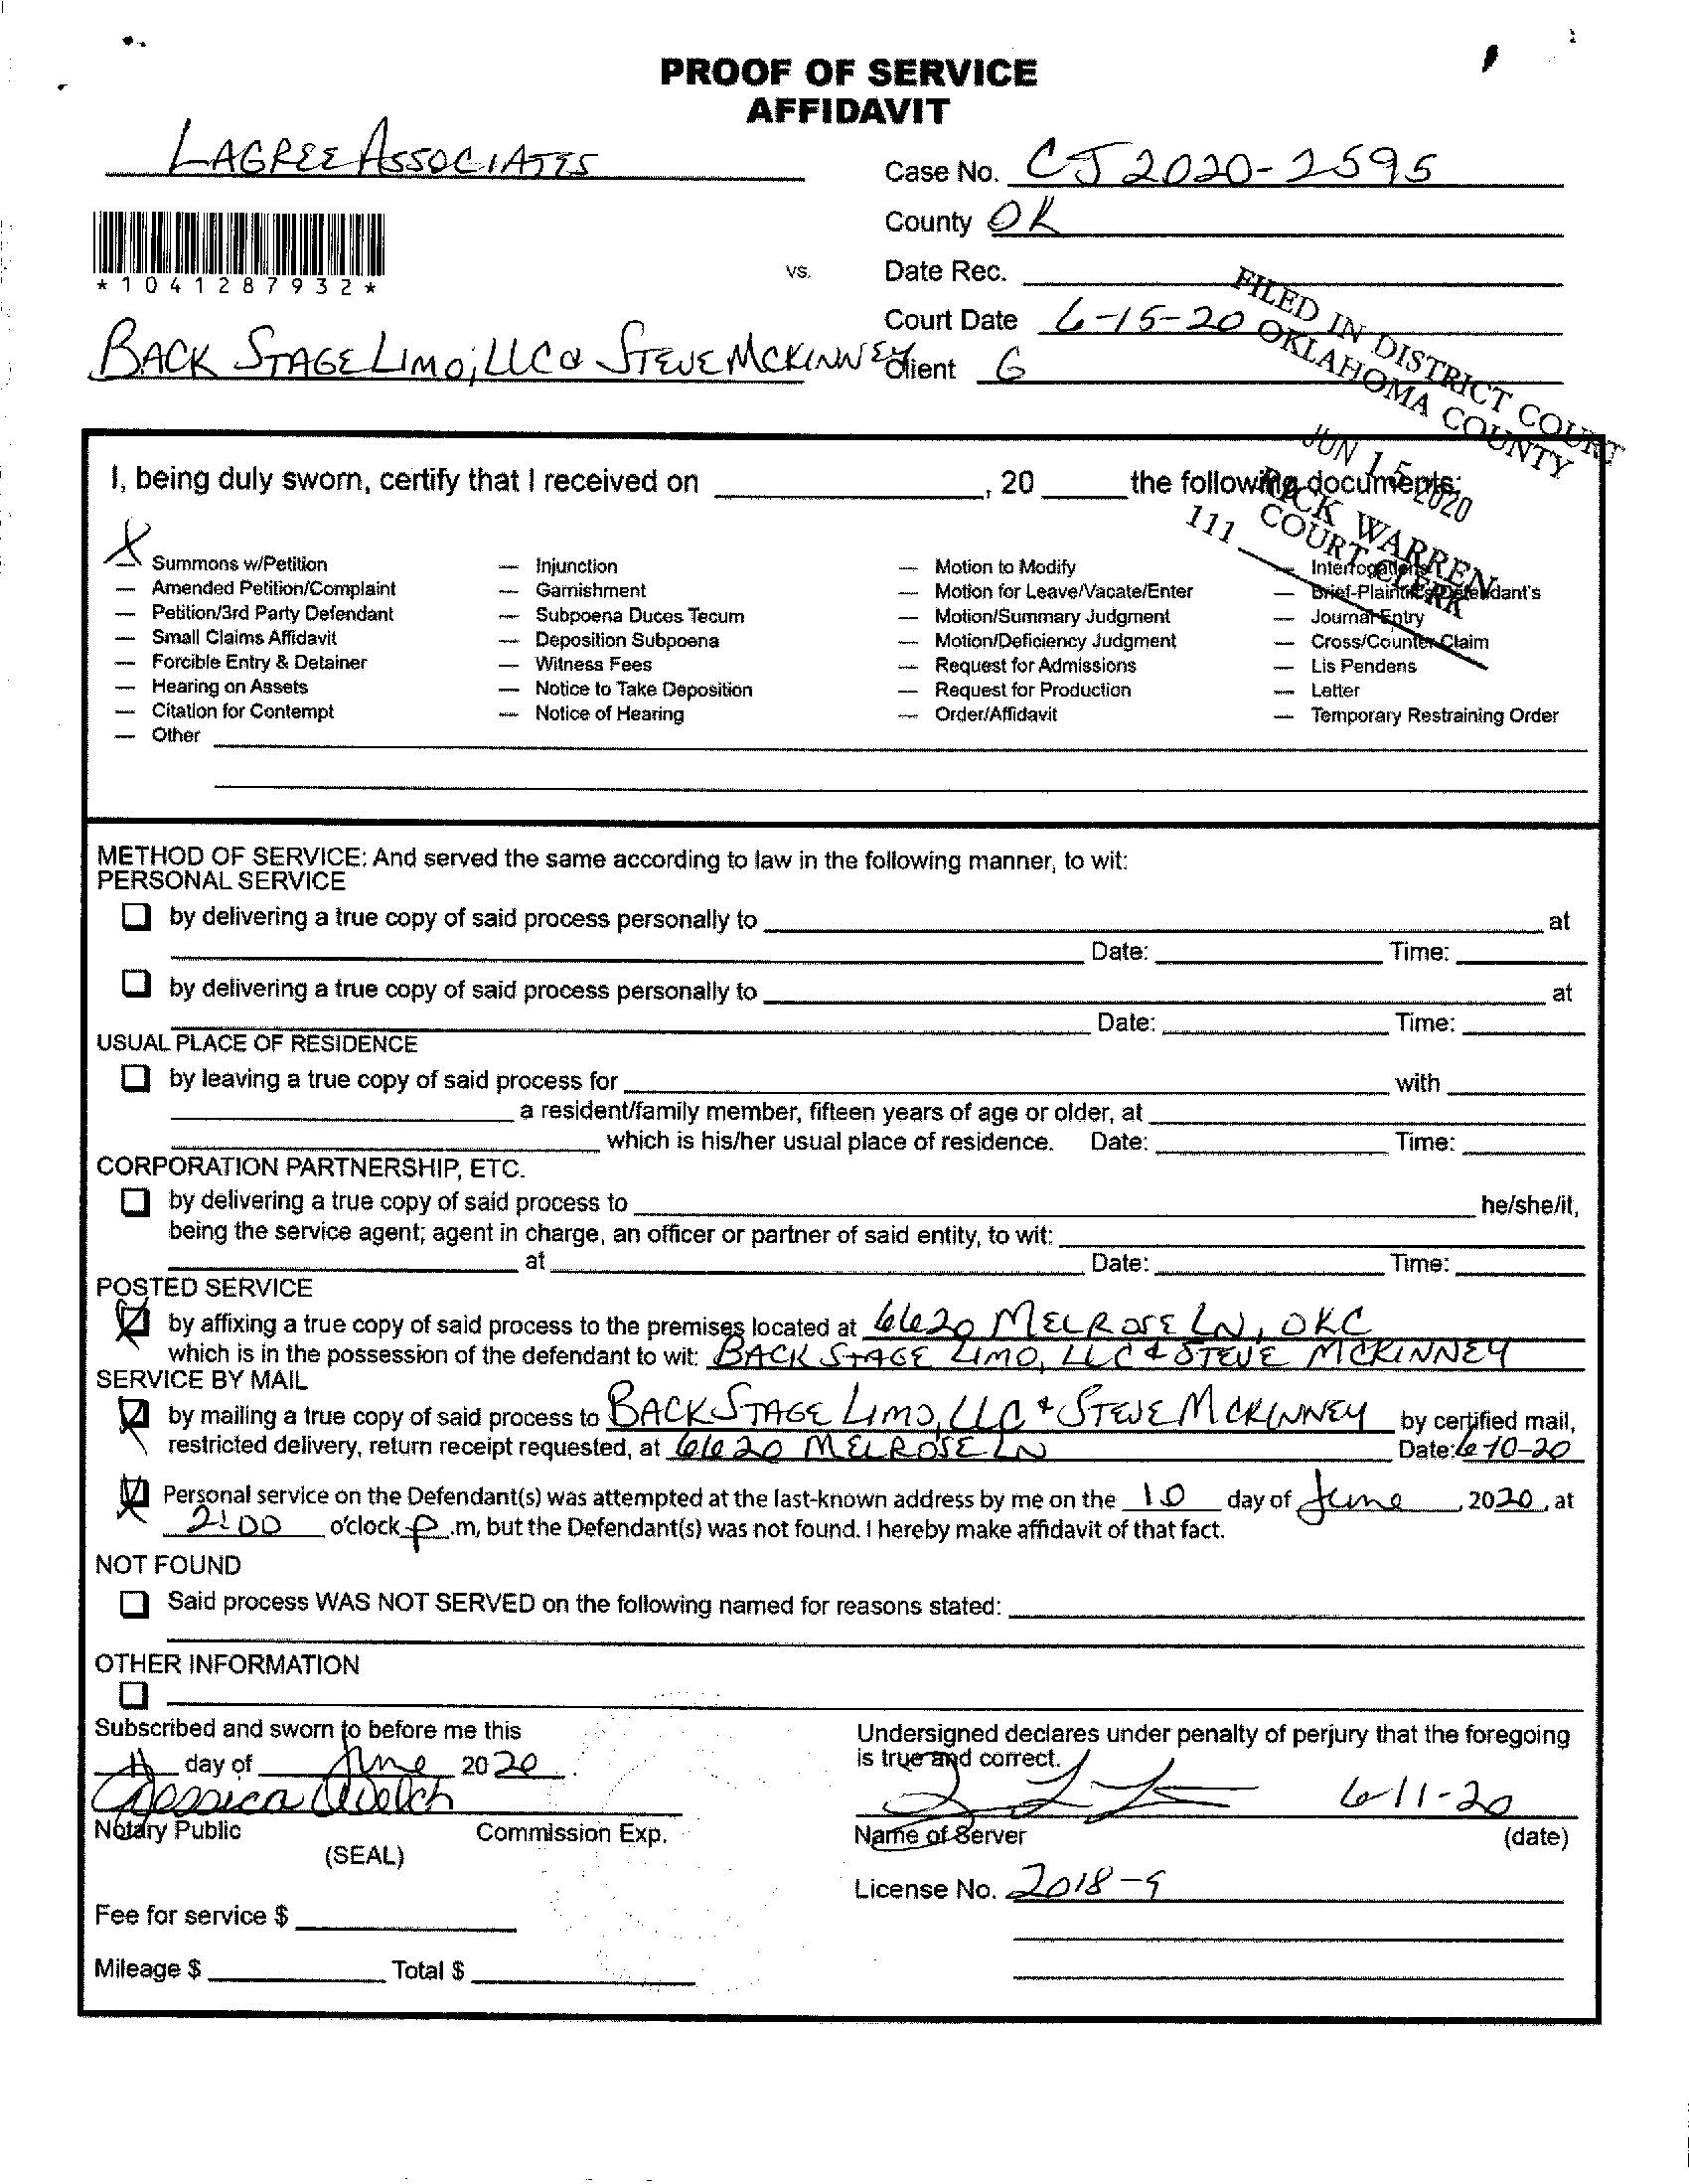 PROOF OF SERVICE
AFFIDAVIT
LAGREE ASSOCIATES
Case No. CJ 2020-2595
County OK
*1041287932*
vs.
Date Rec.
Court Date 6-15-20
BACK STAGE LIMO, LLC & STEVE MCKINNEY
Client G
FILED IN DISTRICT COURT
OKLAHOMA COUNTY
JUN 15 2020
RICK WARREN
COURT CLERK
111
I, being duly sworn, certify that I received on ____, 20 ____ the following documents:
X Summons w/Petition
Amended Petition/Complaint
Petition/3rd Party Defendant
Small Claims Affidavit
Forcible Entry & Detainer
Hearing on Assets
Citation for Contempt
Other
Injunction
Garnishment
Subpoena Duces Tecum
Deposition Subpoena
Witness Fees
Notice to Take Deposition
Notice of Hearing
Motion to Modify
Motion for Leave/Vacate/Enter
Motion/Summary Judgment
Motion/Deficiency Judgment
Request for Admissions
Request for Production
Order/Affidavit
Brief-Plaintiff's/Defendant's
Journal Entry
Cross/Counter Claim
Lis Pendens
Letter
Temporary Restraining Order
METHOD OF SERVICE: And served the same according to law in the following manner, to wit:
PERSONAL SERVICE
by delivering a true copy of said process personally to ____ at
Date: ____ Time: ____
by delivering a true copy of said process personally to ____ at
Date: ____ Time: ____
USUAL PLACE OF RESIDENCE
by leaving a true copy of said process for ____ with ____
a resident/family member, fifteen years of age or older, at ____
which is his/her usual place of residence. Date: ____ Time: ____
CORPORATION PARTNERSHIP, ETC.
by delivering a true copy of said process to ____ he/she/it,
being the service agent; agent in charge, an officer or partner of said entity, to wit: ____
at ____ Date: ____ Time: ____
POSTED SERVICE
by affixing a true copy of said process to the premises located at 6620 MELROSE LN, OKC
which is in the possession of the defendant to wit: BACK STAGE LIMO, LLC & STEVE MCKINNEY
SERVICE BY MAIL
by mailing a true copy of said process to BACK STAGE LIMO, LLC & STEVE MCKINNEY by certified mail,
restricted delivery, return receipt requested, at 6620 MELROSE LN Date: 6-10-20
Personal service on the Defendant(s) was attempted at the last-known address by me on the 10 day of June, 2020, at
2:00 o'clock p.m, but the Defendant(s) was not found. I hereby make affidavit of that fact.
NOT FOUND
Said process WAS NOT SERVED on the following named for reasons stated:
OTHER INFORMATION
Subscribed and sworn to before me this
11 day of June 2020
Jessica Welch
Notary Public Commission Exp.
(SEAL)
Fee for service $
Mileage $ ____ Total $ ____
Undersigned declares under penalty of perjury that the foregoing
is true and correct.
6-11-20
Name of Server (date)
License No. 2018-9